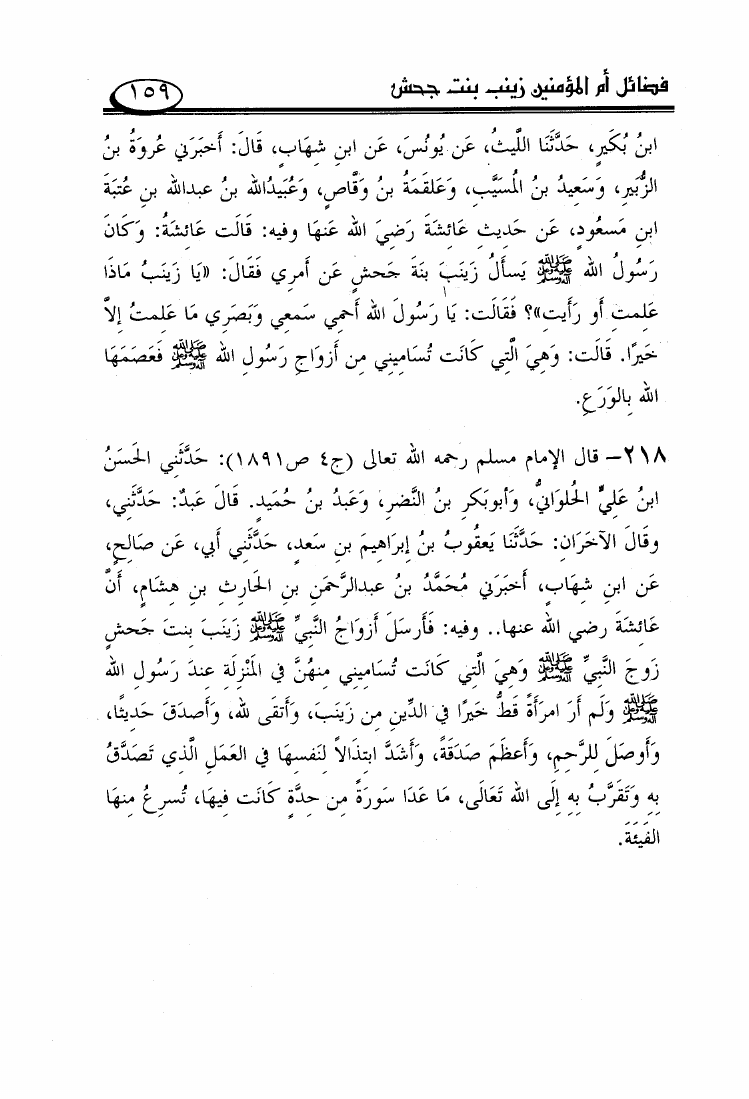 فضائل أم المؤمنين زينب بنت جحش ١٥٩
ابنُ بُكَيرٍ، حَدَّثَنَا اللَّيثُ، عَن يُونُسَ، عَن ابنِ شِهَابٍ، قَالَ: أَخبَرَنِي عُروَةُ بنُ
الزُّبَيرِ، وَسَعِيدُ بنُ المُسَيَّبِ، وَعَلقَمَةُ بنُ وَقَّاصٍ، وَعُبَيدُالله بنُ عبدالله بنِ عُتبَةَ
ابنِ مَسعُودٍ، عَن حَدِيثِ عَائِشَةَ رَضِيَ الله عَنهَا وفيه: قَالَت عَائِشَةُ: وَكَانَ
رَسُولُ الله ﷺ يَسأَلُ زَينَبَ بنَةَ جَحشٍ عَن أَمرِي فَقَالَ: «يَا زَينَبُ مَاذَا
عَلِمتِ أَو رَأَيتِ»؟ فَقَالَت: يَا رَسُولَ الله أَحمِي سَمعِي وَبَصَرِي مَا عَلِمتُ إِلاَّ
خَيرًا. قَالَت: وَهِيَ الَّتِي كَانَت تُسَامِينِي مِن أَزوَاجِ رَسُولِ الله ﷺ فَعَصَمَهَا
الله بِالوَرَعِ.
٢١٨- قال الإمام مسلم رحمه الله تعالى (ج٤ ص١٨٩١): حَدَّثَنِي الحَسَنُ
ابنُ عَلِيٍّ الحُلوَانِيُّ، وَأَبوبَكرِ بنُ النَّضرِ، وَعَبدُ بنُ حُمَيدٍ. قَالَ عَبدٌ: حَدَّثَنِي،
وقَالَ الآخَرَانِ: حَدَّثَنَا يَعقُوبُ بنُ إِبرَاهِيمَ بنِ سَعدٍ، حَدَّثَنِي أَبِي، عَن صَالِحٍ،
عَن ابنِ شِهَابٍ، أَخبَرَنِي مُحَمَّدُ بنُ عبدالرَّحمَنِ بنِ الحَارِثِ بنِ هِشَامٍ، أَنَّ
عَائِشَةَ رضي الله عنها.. وفيه: فَأَرسَلَ أَزوَاجُ النَّبِيِّ ﷺ زَينَبَ بِنتَ جَحشٍ
زَوجَ النَّبِيِّ ﷺ وَهِيَ الَّتِي كَانَت تُسَامِينِي مِنهُنَّ فِي المَنْزِلَةِ عِندَ رَسُولِ الله
ﷺ وَلَم أَرَ امرَأَةً قَطُّ خَيرًا فِي الدِّينِ مِن زَينَبَ، وَأَتقَى لله، وَأَصدَقَ حَدِيثًا،
وَأَوصَلَ لِلرَّحِمِ، وَأَعظَمَ صَدَقَةً، وَأَشَدَّ ابتِذَالاً لِنَفسِهَا فِي العَمَلِ الَّذِي تَصَدَّقُ
بِهِ وَتَقَرَّبُ بِهِ إِلَى الله تَعَالَى، مَا عَدَا سَورَةً مِن حِدَّةٍ كَانَت فِيهَا، تُسرِعُ مِنهَا
الفَيئَةَ.